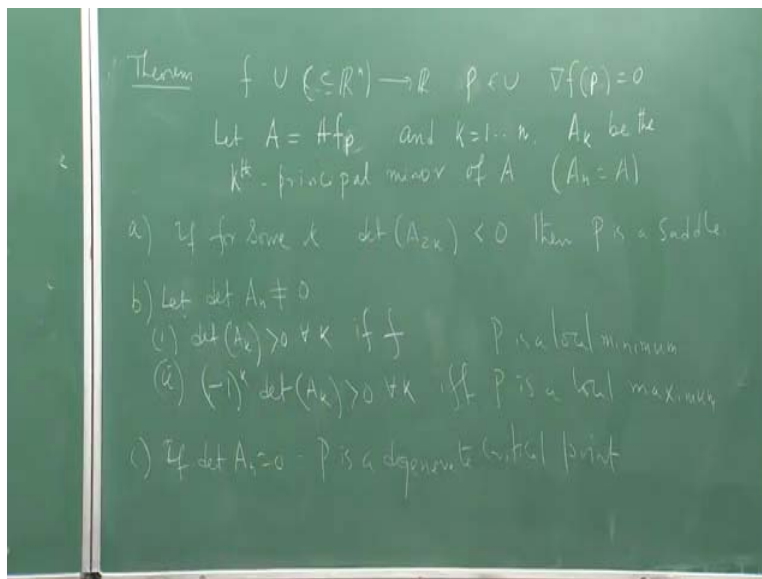 Theorem f U (⊆ ℝⁿ) → ℝ P ∈ U ∇f(p) = 0
Let A = Hfp, and k=1...n, Ak be the
kth - principal minor of A (An = A)
a) If for some k det(A2k) < 0 then P is a saddle.
b) Let det An ≠ 0
(i) det(Ak) > 0 ∀ k iff P is a local minimum
(ii) (-1)^k det(Ak) > 0 ∀k iff P is a local maximum
c) If det An = 0 - P is a degenerate critical point